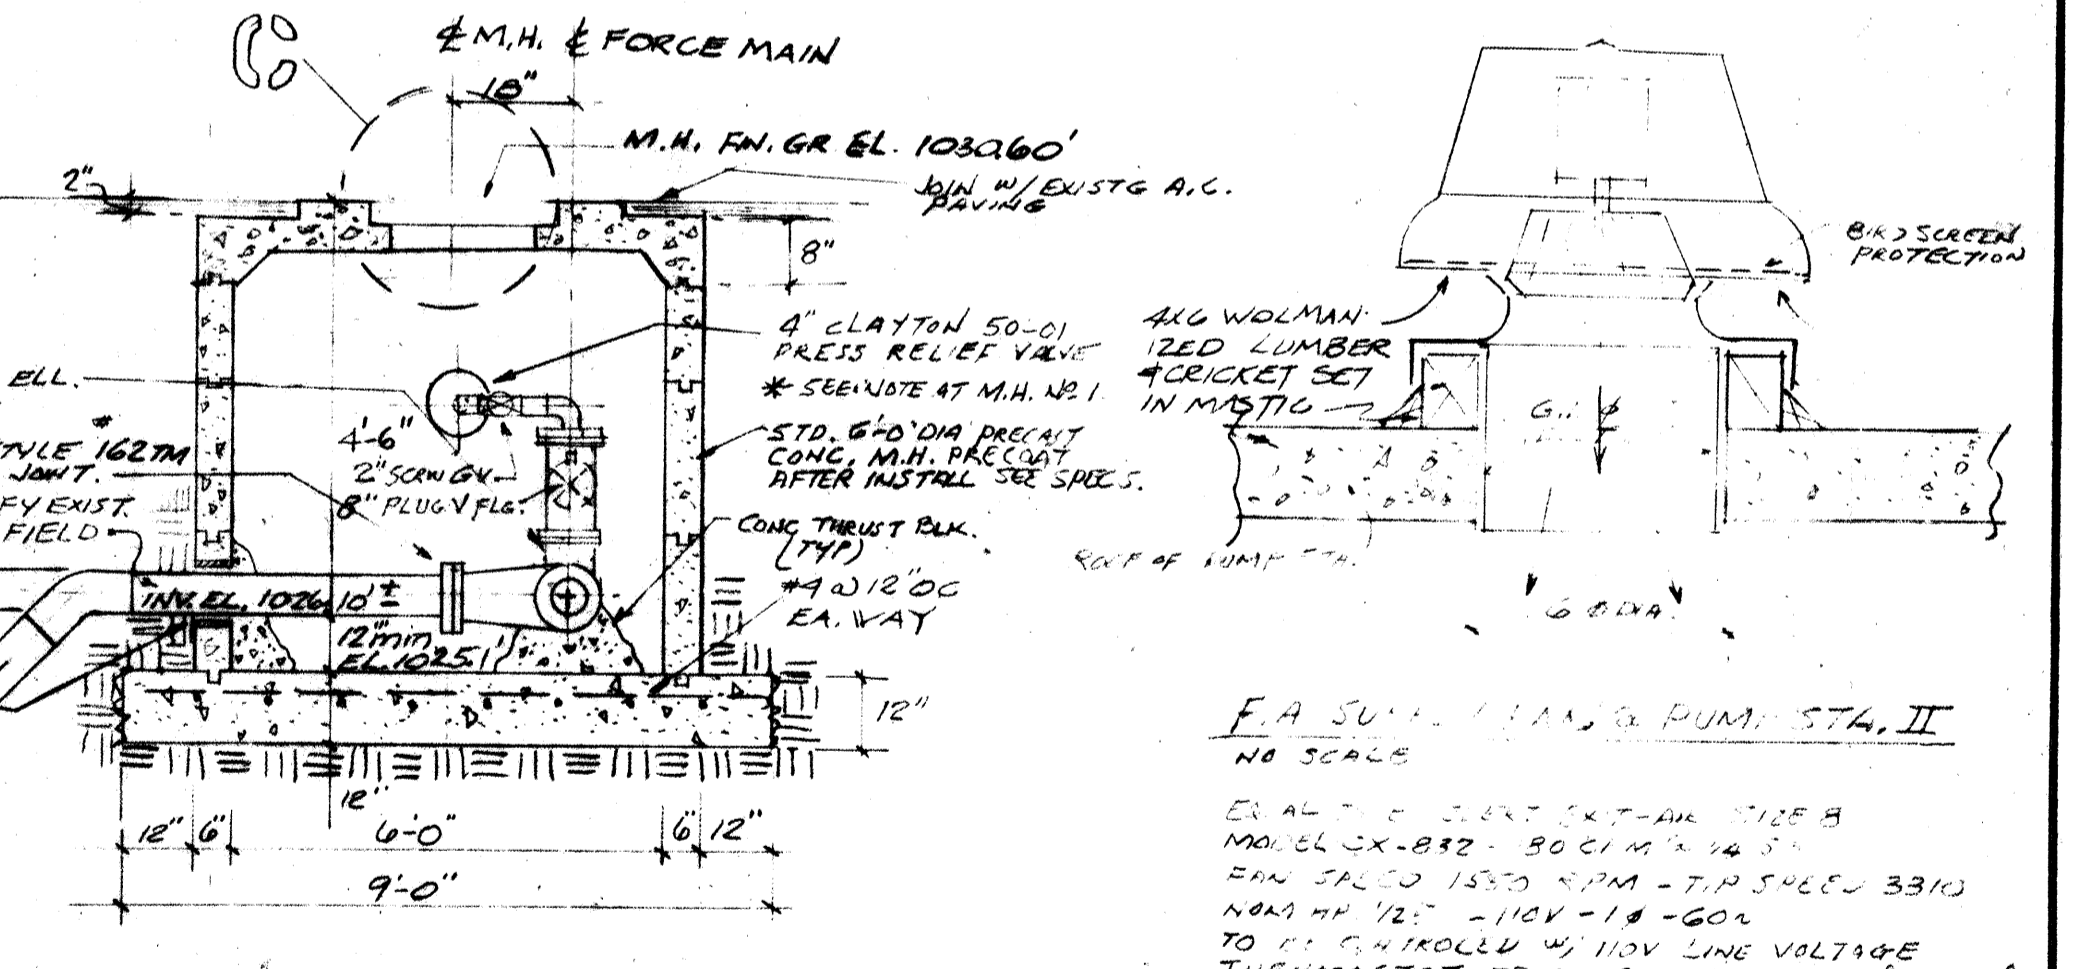 ℄ M.H. ℄ FORCE MAIN
18"
M.H. FIN. GR EL. 1030.60'
JOIN W/ EXIST'G A.C.
PAVING
2"
8"
4" CLAYTON 50-01
PRESS RELIEF VALVE
* SEE NOTE AT M.H. Nº 1
ELL.
4'-6"
2" SCRW GV
8" PLUG V FLG.
STD. 6'-0" DIA PRECAST
CONC. M.H. PRECOAT
AFTER INSTALL SEE SPECS.
TYLE 162TM
JOINT.
FY EXIST.
FIELD
CONC THRUST BLK.
(TYP)
#4 @ 12" OC
EA. WAY
INV. EL. 1026.10' ±
12" min
EL. 1025.1'
12"
12"
12" 6" 6'-0" 6" 12"
9'-0"
BIRD SCREEN
PROTECTION
4X6 WOLMAN-
IZED LUMBER
& CRICKET SET
IN MASTIC
ROOF OF PUMP STA.
6 Ø DIA.
F.A. PUMP STA. II
NO SCALE
EXIT-AIR SIZE 8
MODEL
FAN SPEED 1550 RPM - TIP SPEED 3310
NOM HP - 110V - 1ø - 60~
TO BE CONTROLED W/ 110V LINE VOLTAGE